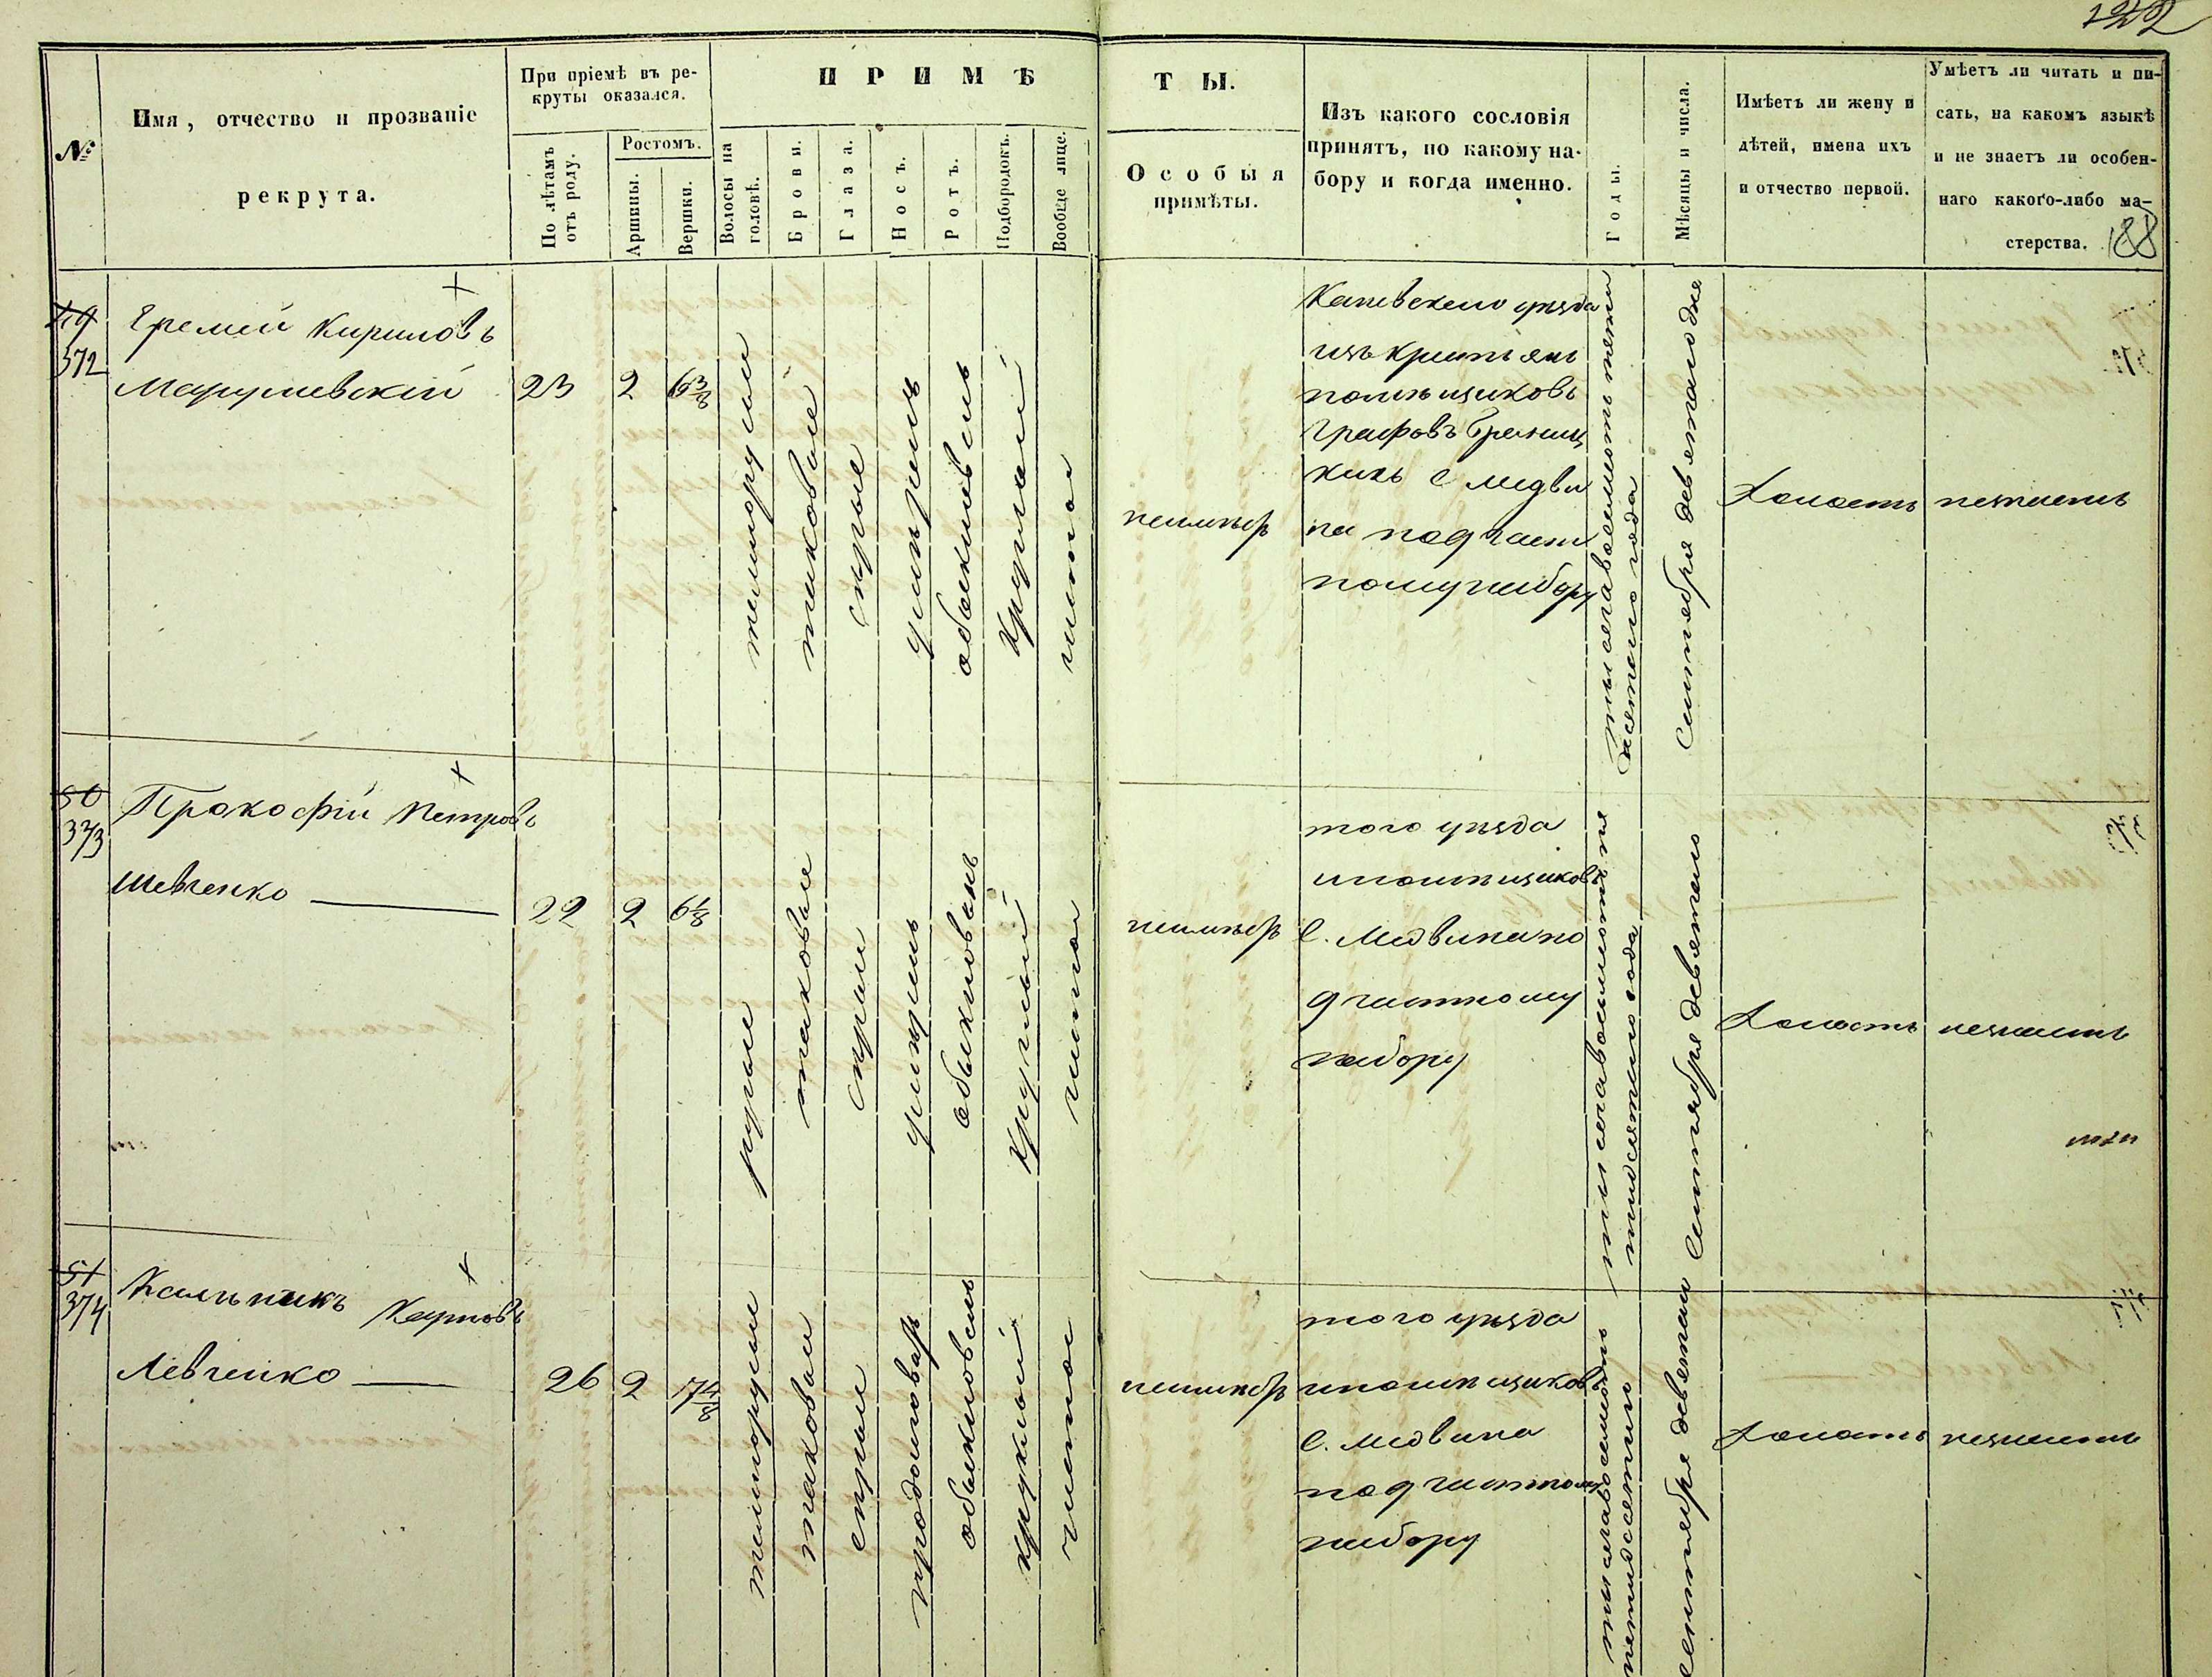 122
№
Имя, отчество и прозваніе
рекрута.
При пріемѣ въ ре-
круты оказался.
По лѣтамъ
отъ роду.
Ростомъ.
Аршины.
Вершки.
ПРИМѢ
Волосы на
головѣ.
Брови.
Глаза.
Носъ.
Ротъ.
Подбородокъ.
Вообще лице.
ТЫ.
Особыя
примѣты.
Изъ какого сословія
принятъ, по какому на-
бору и когда именно.
Годы.
Мѣсяцы и числа.
Имѣетъ ли жену и
дѣтей, имена ихъ
и отчество первой.
Умѣетъ ли читать и пи-
сать, на какомъ языкѣ
и не знаетъ ли особен-
наго какого-либо ма-
стерства.
188
49
372
Еремей Кириловъ
23
2
6 3/8
темнорусыи
таковые
серые
умерень
обыкновень
круглый
чистое
неимѣеть
Каневского уезда
изъ крестьян
помѣщиковъ
Графовъ
с Медви
на по 9 част
ному набору
Сентября девятого дня
Холость
незнаеть
50
373
Прокофій Петровъ
Шевченко
22
2
6 1/8
русые
таковые
серыи
умерень
обыкновень
круглый
чистое
неимѣеть
того уезда
ипомѣщиковъ
С. Медвина по
9 частному
набору
тысяча восемьсот пя
тидесятого года
Сентября девятого
Холость
незнаеть
51
374
Калѣникъ Карповъ
Левченко
26
2
7 4/8
темнорусыи
таковыи
серыи
продолговат
обыкновень
круглый
чистое
неимѣеть
того уезда
ипомѣщиковъ
С. Медвина
по 9 частному
набору
тысяча восемьсоть
пятидесятого
Сентября девятаго
Холость
незнаеть